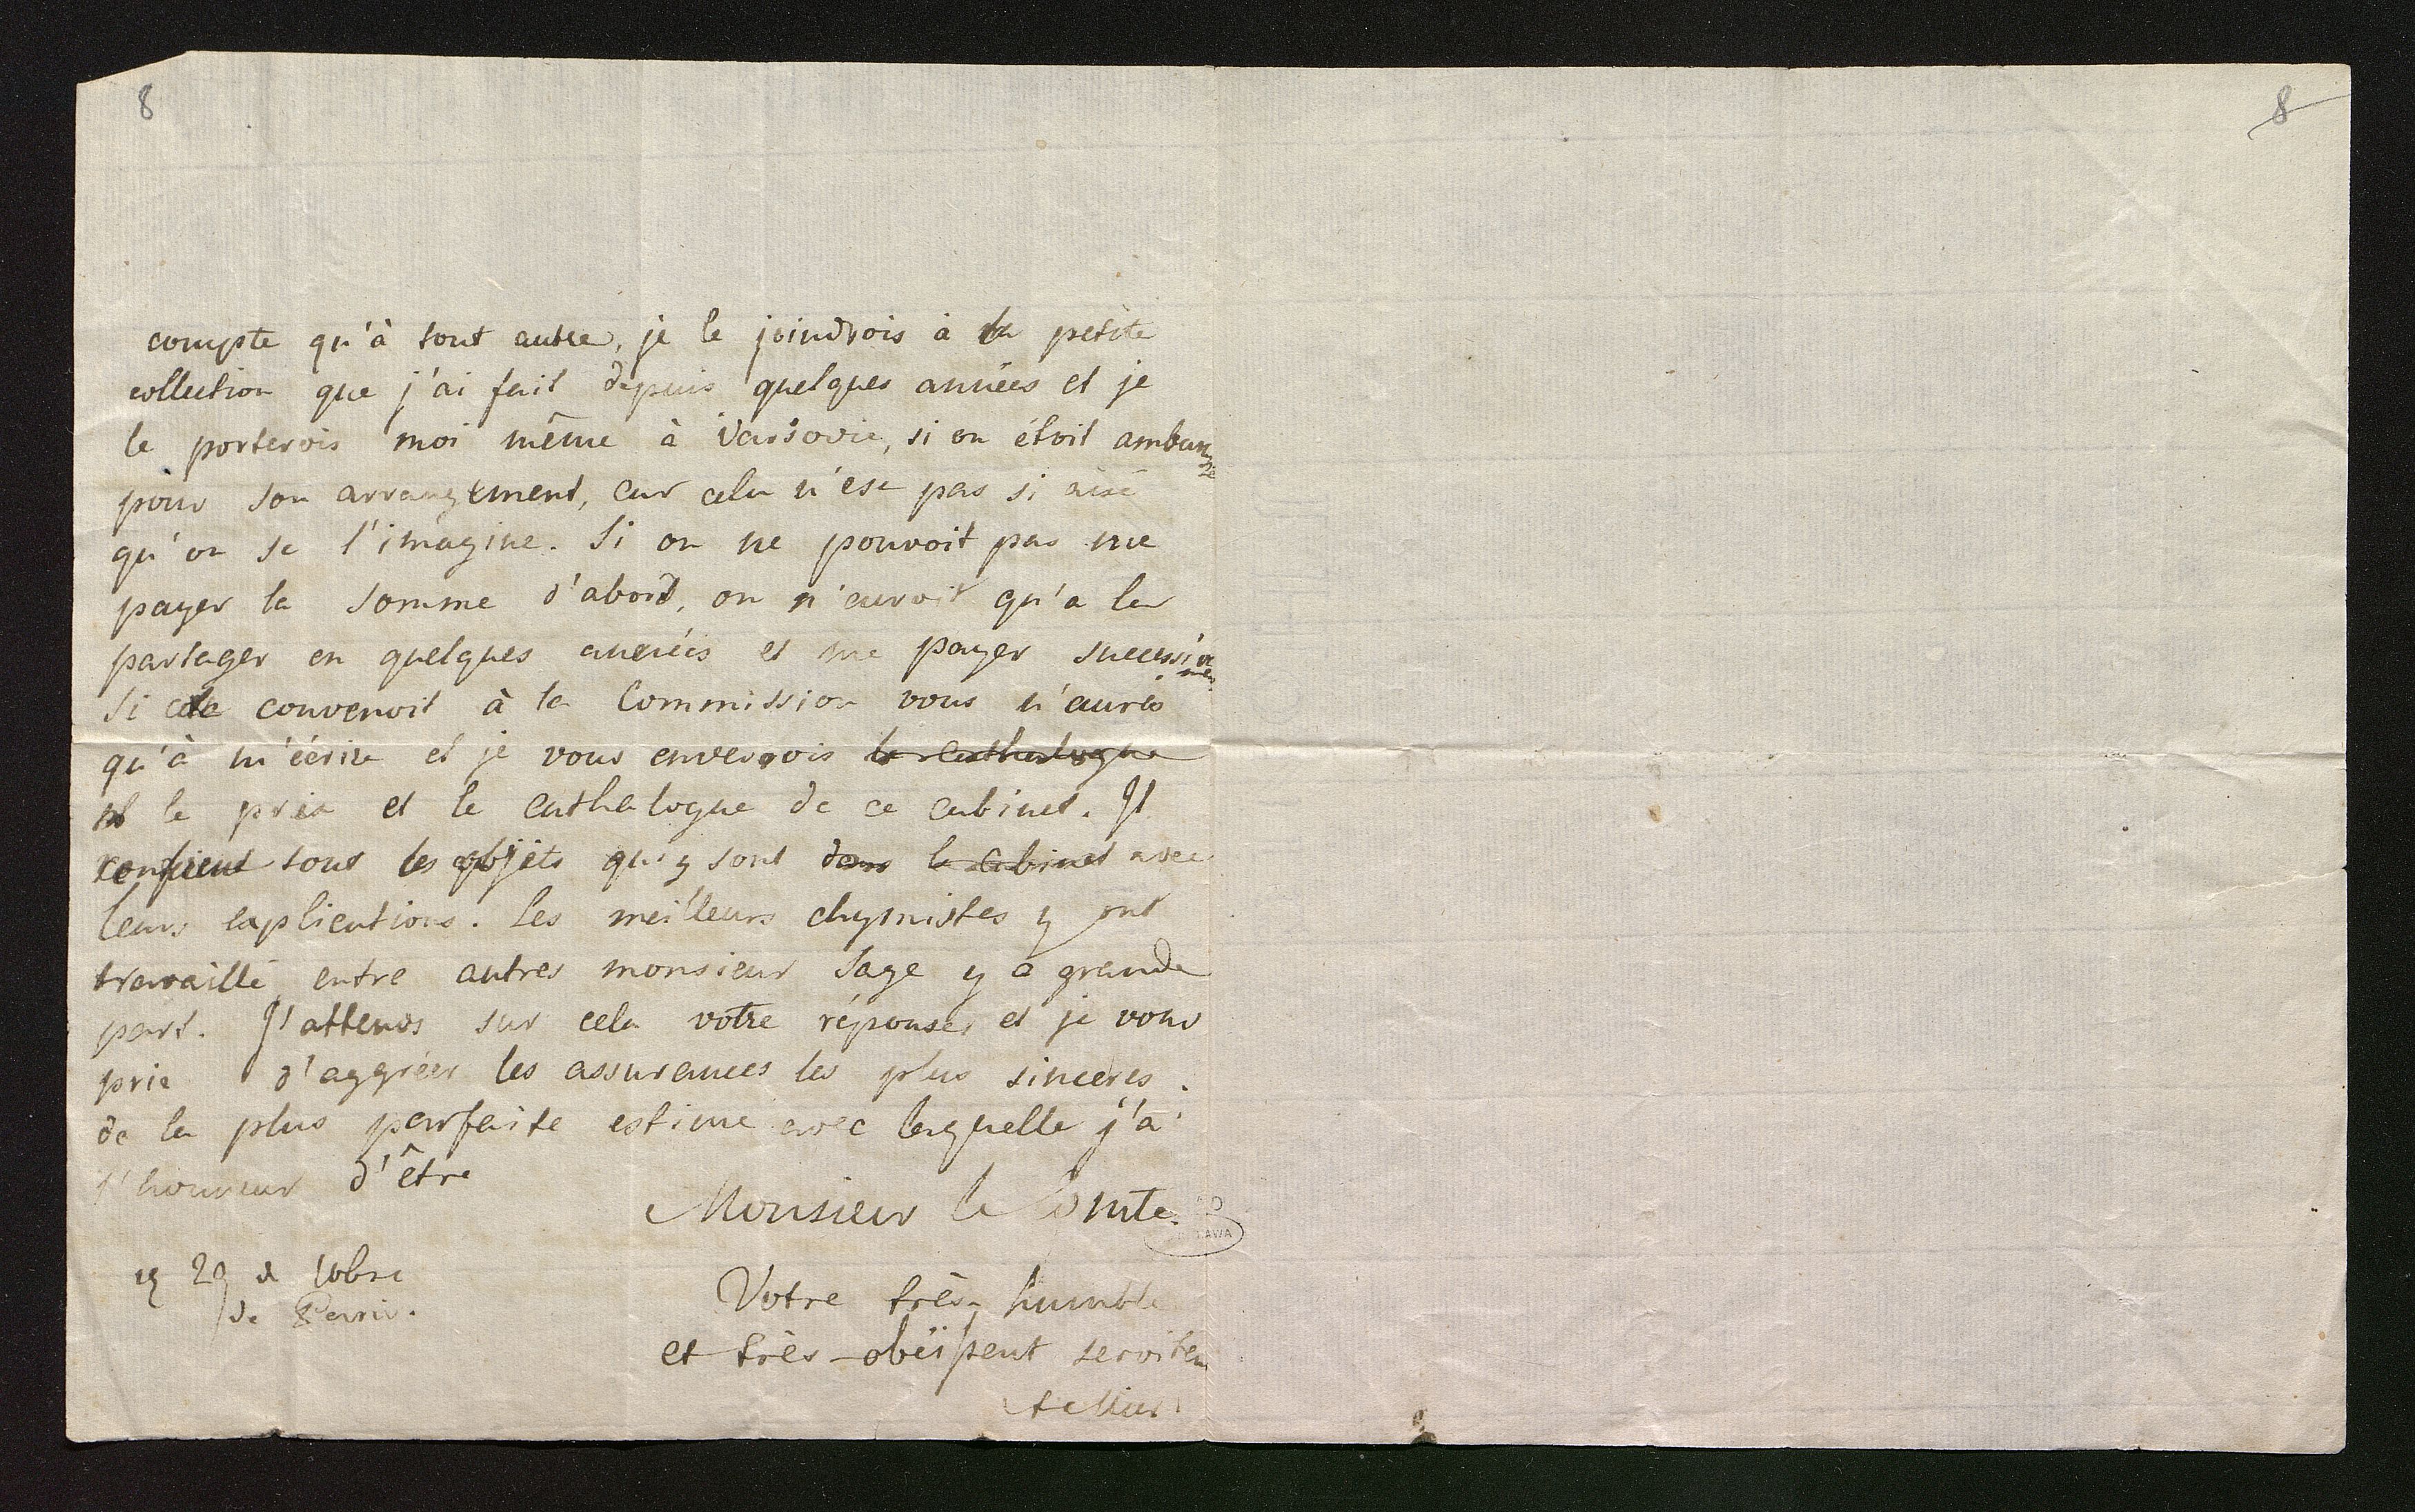 8
8
compte qu'à tout autre, je le joindrois à la petite
collection que j'ai fait depuis quelques années et je
le porterois moi même à Varsovie, si on étoit ambarassé
pour son arrangement, car cela n'est pas si aisé
qu'on se l'imagine. Si on ne pouvoit pas me
payer la somme d'abord, on n'auroit qu'a la
partager en quelques années et me payer
Si cela convenoit à la Commission vous n'aurés
qu'à m'écrire et je vous enverrois le cathalogue
le prix et le cathalogue de ce cabinet. Il
contient tout les objèts qui y sont dans le cabinet avec
leurs explications. Les meilleurs chymistes y ont
travaillé entre autres monsieur Sage y a grande
part. J'attends sur cela votre réponse, et je vous
prie d'aggréer les assurances les plus sinceres
de la plus parfaite estime avec laquelle j'ai
l'honneur d'être
Monsieur le Comte
29 de
de Paris.
Votre très humble
et très-obéissent serviteu